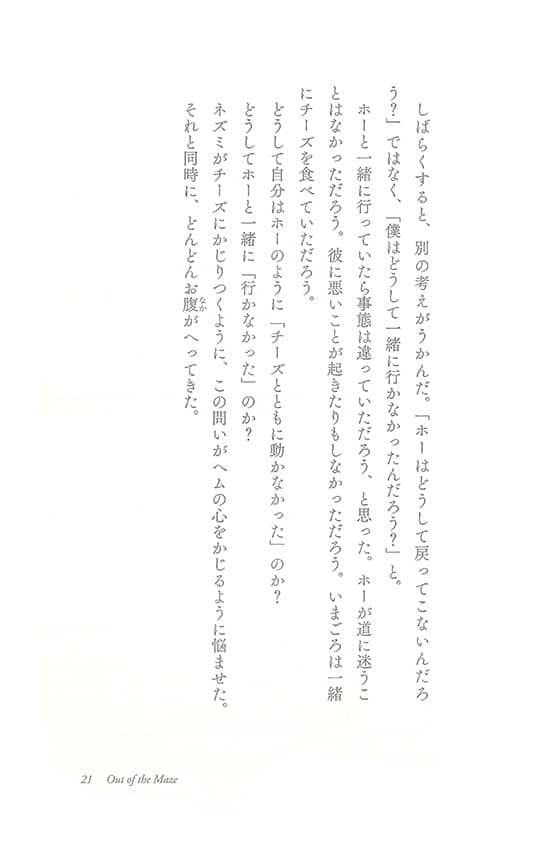 しばらくすると、別の考えがうかんだ。「ホーはどうして戻ってこないんだろ
う？」ではなく、「僕はどうして一緒に行かなかったんだろう？」と。
ホーと一緒に行っていたら事態は違っていただろう、と思った。ホーが道に迷うこ
とはなかっただろう。彼に悪いことが起きたりもしなかっただろう。いまごろは一緒
にチーズを食べていただろう。
どうして自分はホーのように「チーズとともに動かなかった」のか？
どうしてホーと一緒に「行かなかった」のか？
ネズミがチーズにかじりつくように、この問いがヘムの心をかじるように悩ませた。
それと同時に、どんどんお腹がへってきた。
なか
21 Out of the Maze